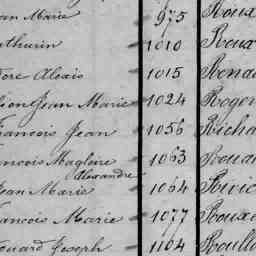 an Marie 975 Roux
athurin 1010 Roux
ore Alexis 1015 Rena
ion Jean Marie 1024 Roger
rancois Jean 1056 Richa
ancois Magloire 1063 Roua
Alexandre
Jean Marie 1064 Rivic
ancois Marie 1077 Roux
ouard Joseph 1104 Roull